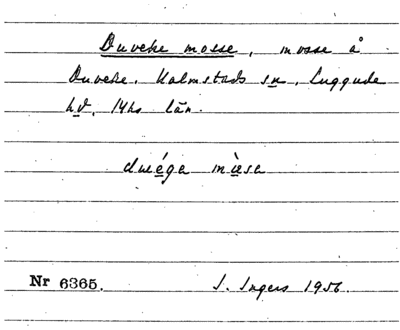 Duveke mosse, mosse å
Duveke, Kalmstads sn, Luggude
hd, Mhs län.
duvéga mùsa
Nr 6365.
I. Ingers 1956.